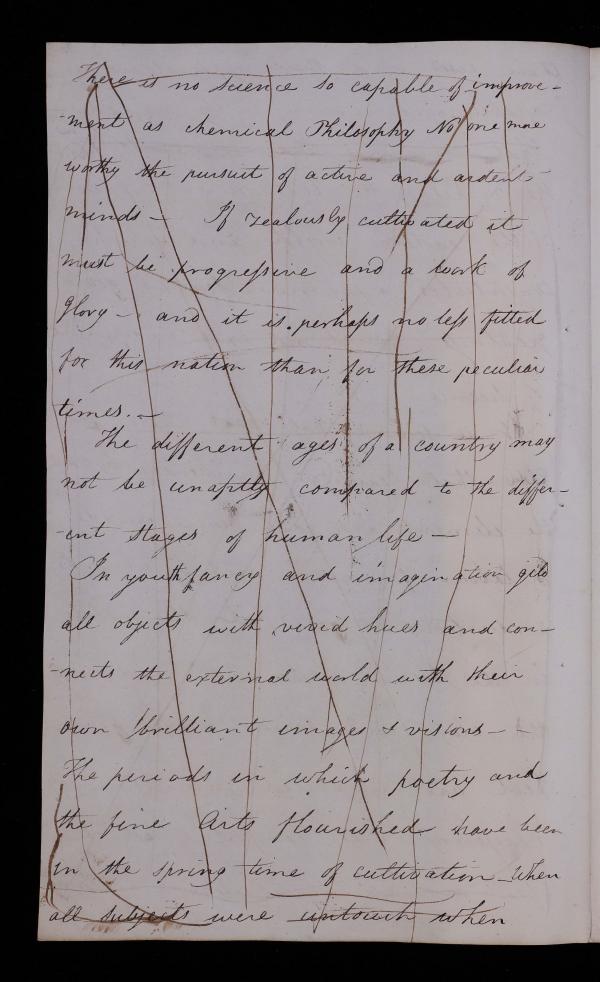 There is no science so capable of improve-
-ment as chemical Philosophy No one more
worthy the pursuit of active and ardent -
minds - If zealously cultivated it
must be progressive and a work of
glory - and it is perhaps no less fitted
for this nation than for these peculiar
times. -
The different ages of a country may
not be unaptly compared to the differ-
-ent stages of human life -
In youth fancy and imagination gild
all objects with vivid hues and con-
-nects the external world with their
own brilliant images & visions - -
The periods in which poetry and
the fine Arts flourished have been
in the spring time of cultivation - When
all subjects were untouch when